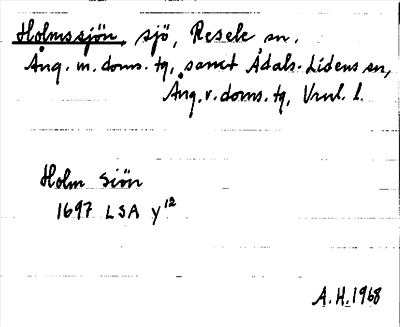 Holmssjön, sjö, Resele sn.
Ång. m. doms. tg, samt Ådals-Lidens sn,
Ång. v. doms. tg, Vnrl. l.
Holm Siön
1697 LSA Y¹²
A.H. 1968